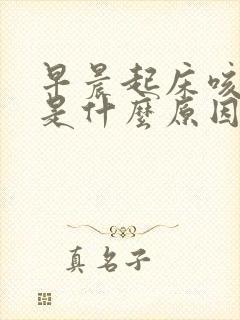 早晨起床咳
是什麼原因
真名子